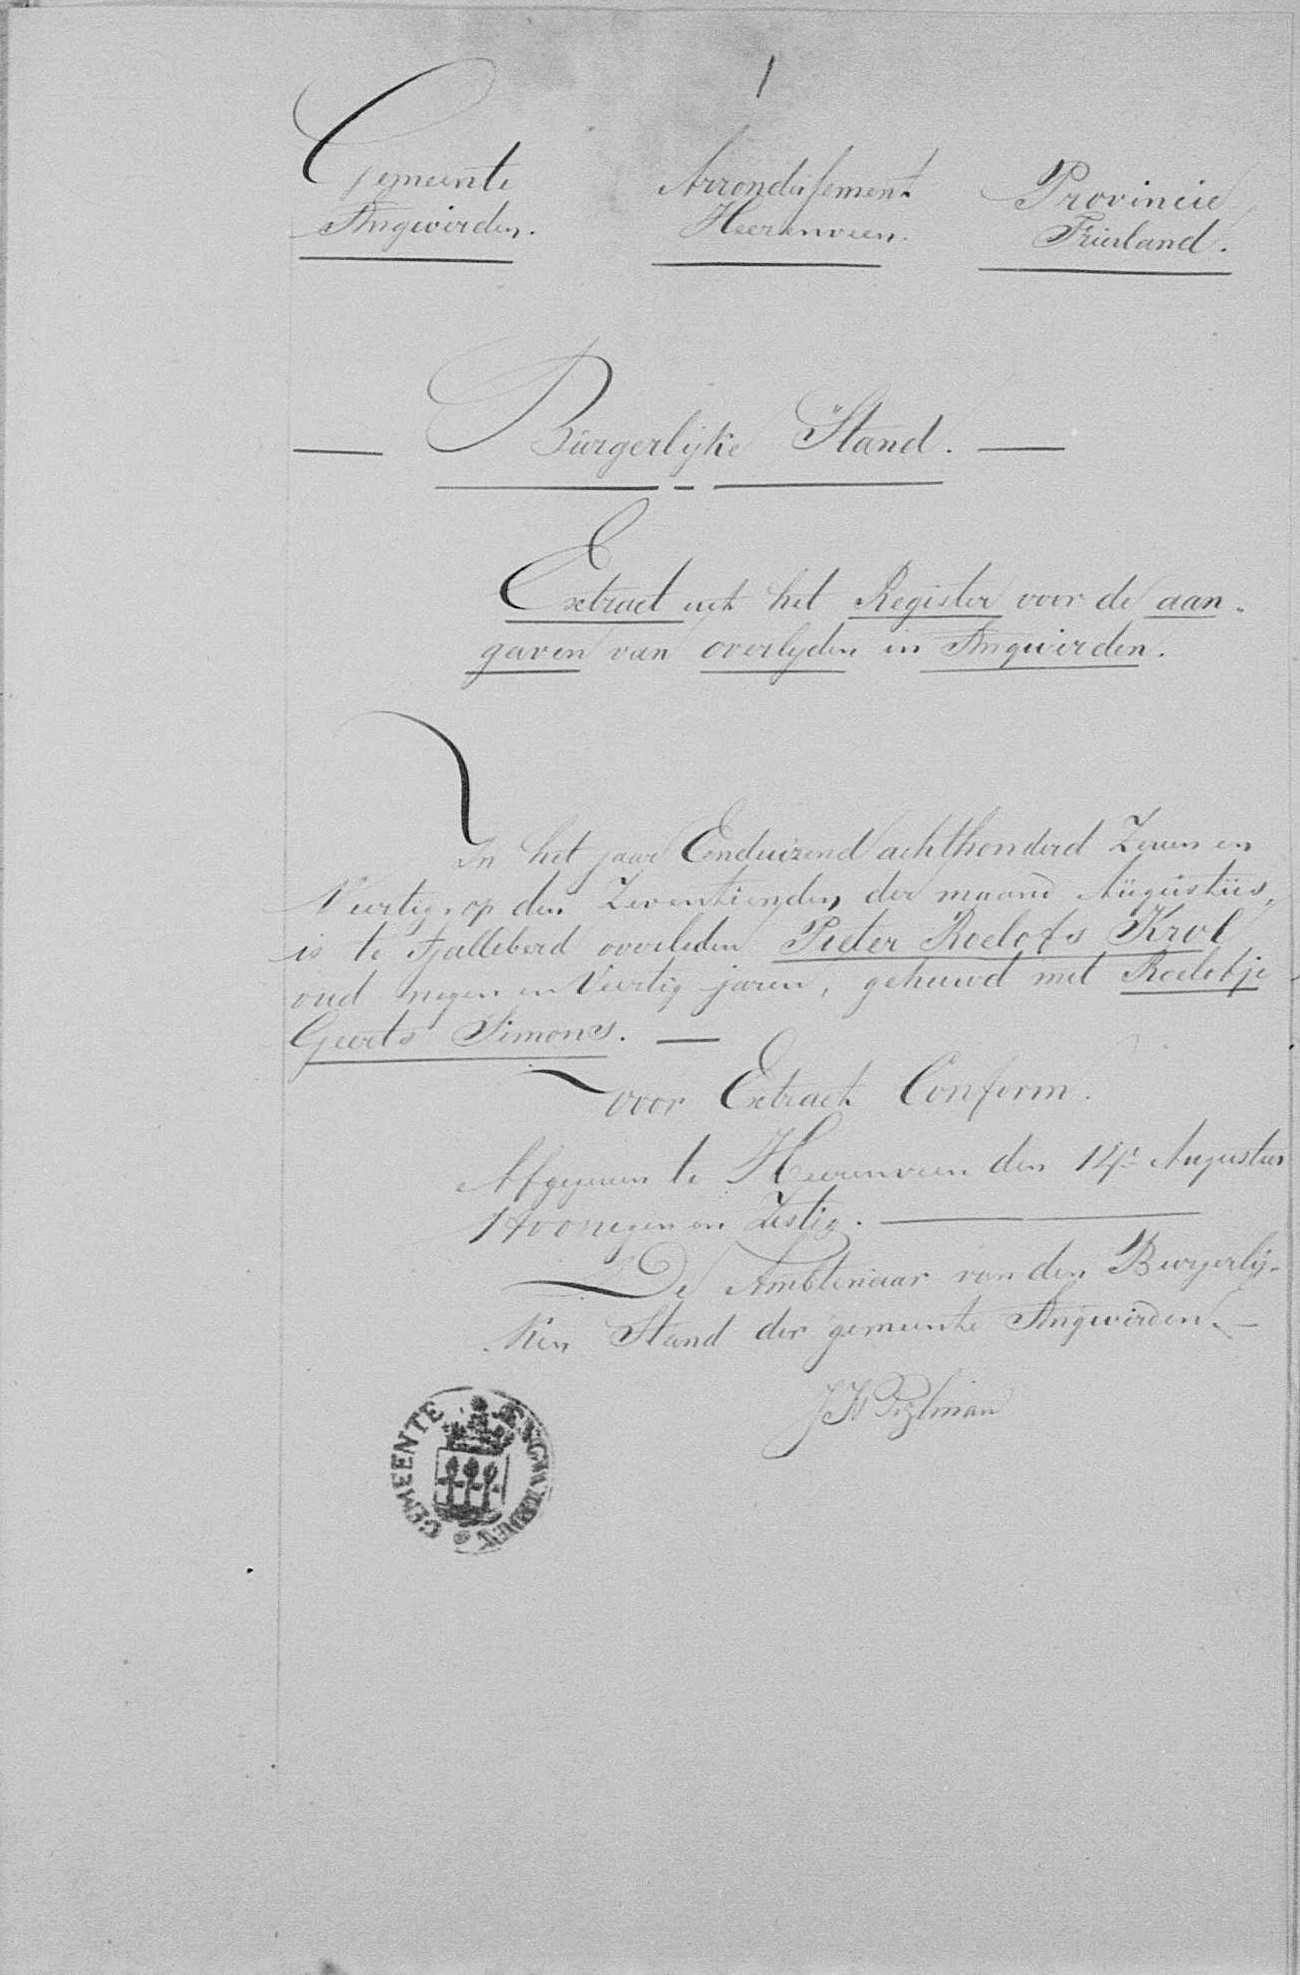 1
Gemeente Arrondissement Provincie
Ængwirden. Heerenveen. Friesland.
Burgerlijke Stand.
Extract uit het Register voor de aan-
gaven van overlyden in Ængwirden.
In het jaar Eenduizend achthonderd Zeven en
Veertig, op den Zeventienden der maand Augustus,
is te Tjalleberd overleden Pieter Roelofs Krol
oud negen en Veertig jaren, gehuwd met Roelofje
Geerts Simons.
Voor Extract Conform.
Afgegeven te Heerenveen den 14e Augustus
1800 negen en Zestig.
De Ambtenaar van den Burgerlij-
ken Stand der gemeente Ængwirden.
GEMEENTE ÆNGWIRDEN